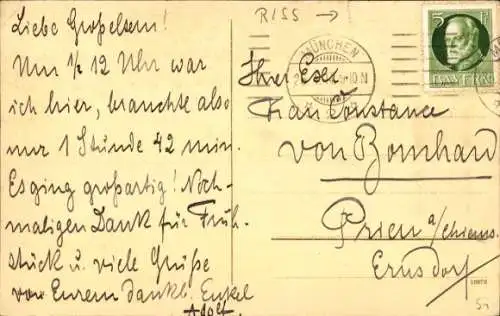 Liebe Großeltern!
Um ½ 12 Uhr war
ich hier, brauchte also
nur 1 Stunde 42 min.
Es ging großartig! Noch-
maligen Dank für Früh-
stück u. viele Grüße
von Eurem dankb. Enkel
Adolf.
RISS →
MÜNCHEN
5
BAYERN
Ihrer Exc.
Frau Constance
von Bomhard
Prien a/Chiems.
Ernsdorf